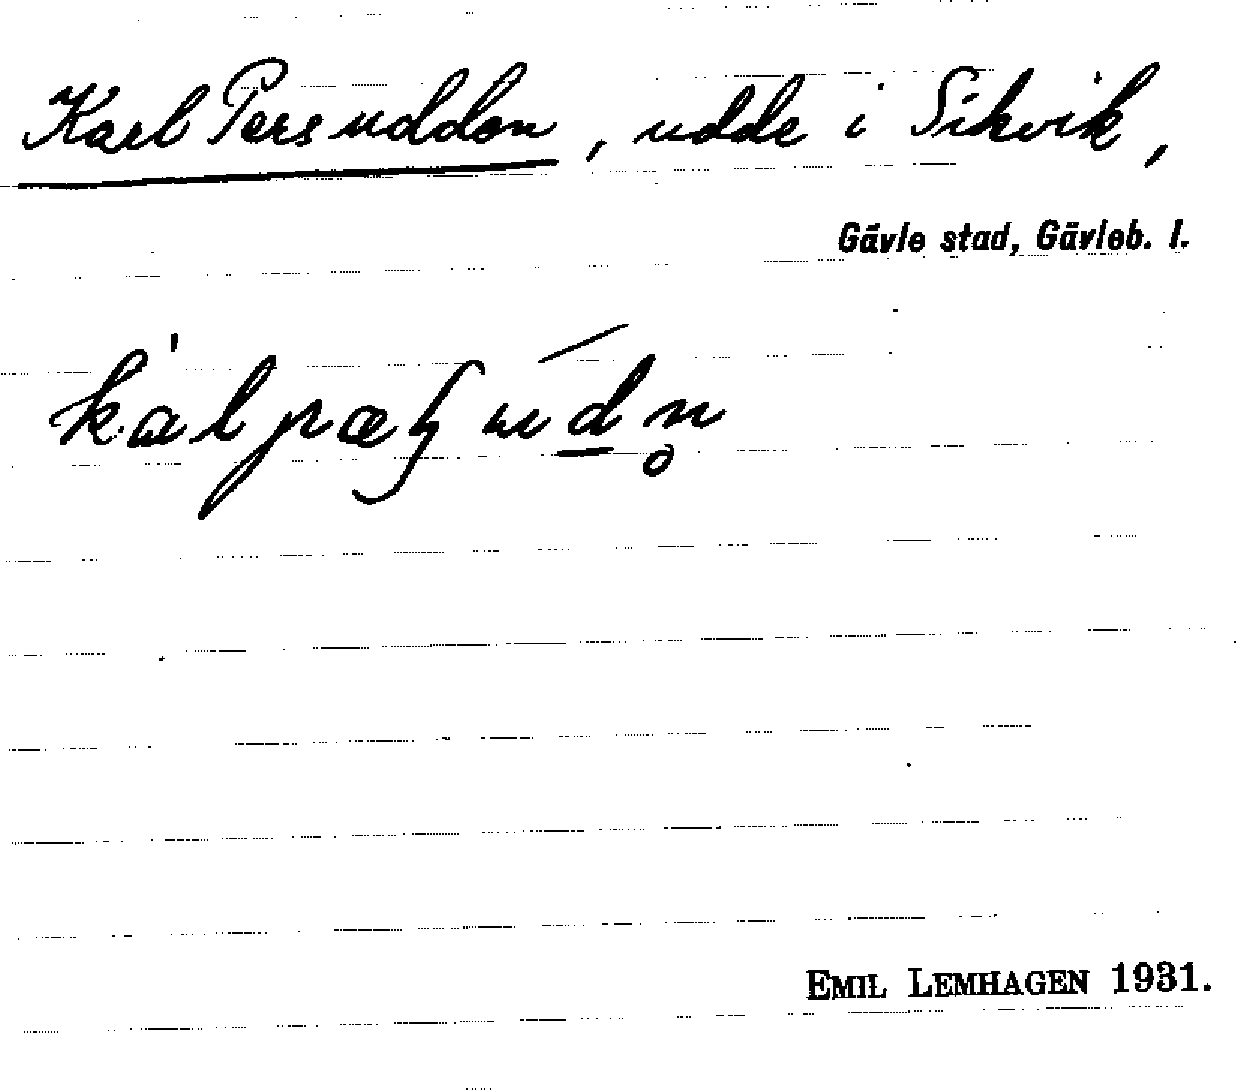 Karl Persudden, udde i Sikvik,
Gävle stad, Gävleb. l.
EMIL LEMHAGEN 1931.